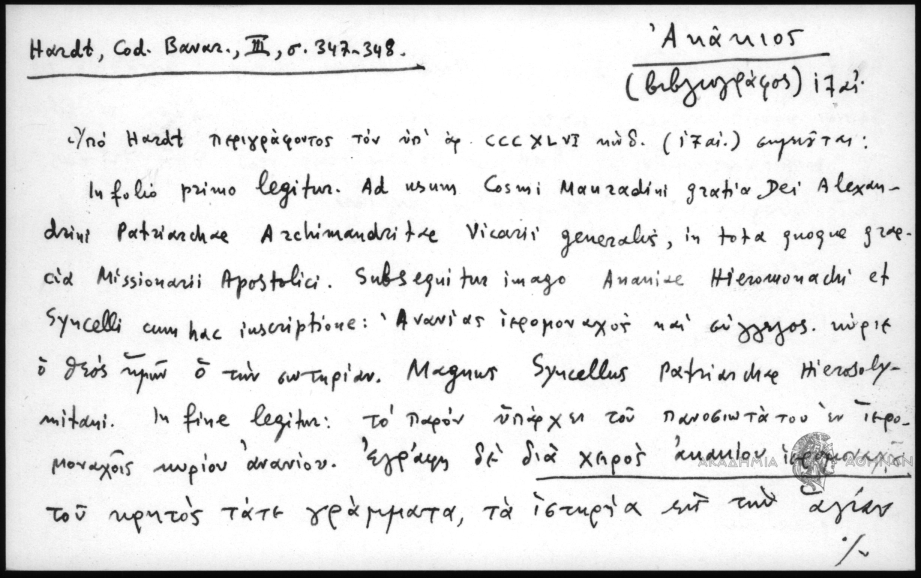 Ἀκάκιος
Hardt, Cod. Bavar., III, σ. 347-348.
(βιβλιογράφος) ιζ' αἰ.
Ὑπό Hardt περιγράφοντος τόν ὑπ' ἀρ. CCCXLVI κώδ. (ιζ' αἰ.) σημειοῦται:
In folio primo legitur. Ad usum Cosmi Mauradini gratia Dei Alexan-
drini Patriarchae Archimandritae Vicarii generalis, in tota quoque grae-
cia Missionarii Apostolici. Subsequitur imago Ananiae Hieromonachi et
Syncelli cum hac inscriptione: Ἀνανίας ἱερομοναχός καί σύγγελος. κύριε
ὁ θεός ἡμῶν ὁ τὴν σωτηρίαν. Magnus Syncellus Patriarchae Hierosoly-
mitani. In fine legitur: τό παρόν ὑπάρχει τοῦ πανοσιωτάτου ἐν ἱερο-
μοναχοῖς κυρίου ἀνανίου. Ἐγράφη δέ διά χειρὸς ἀκακίου
τοῦ κρητὸς τάτε γράμματα, τὰ ἱστηρία εἰς τὴν ἁγίαν
·/.
ΑΚΑΔΗΜΙΑ ΑΘΗΝΩΝ